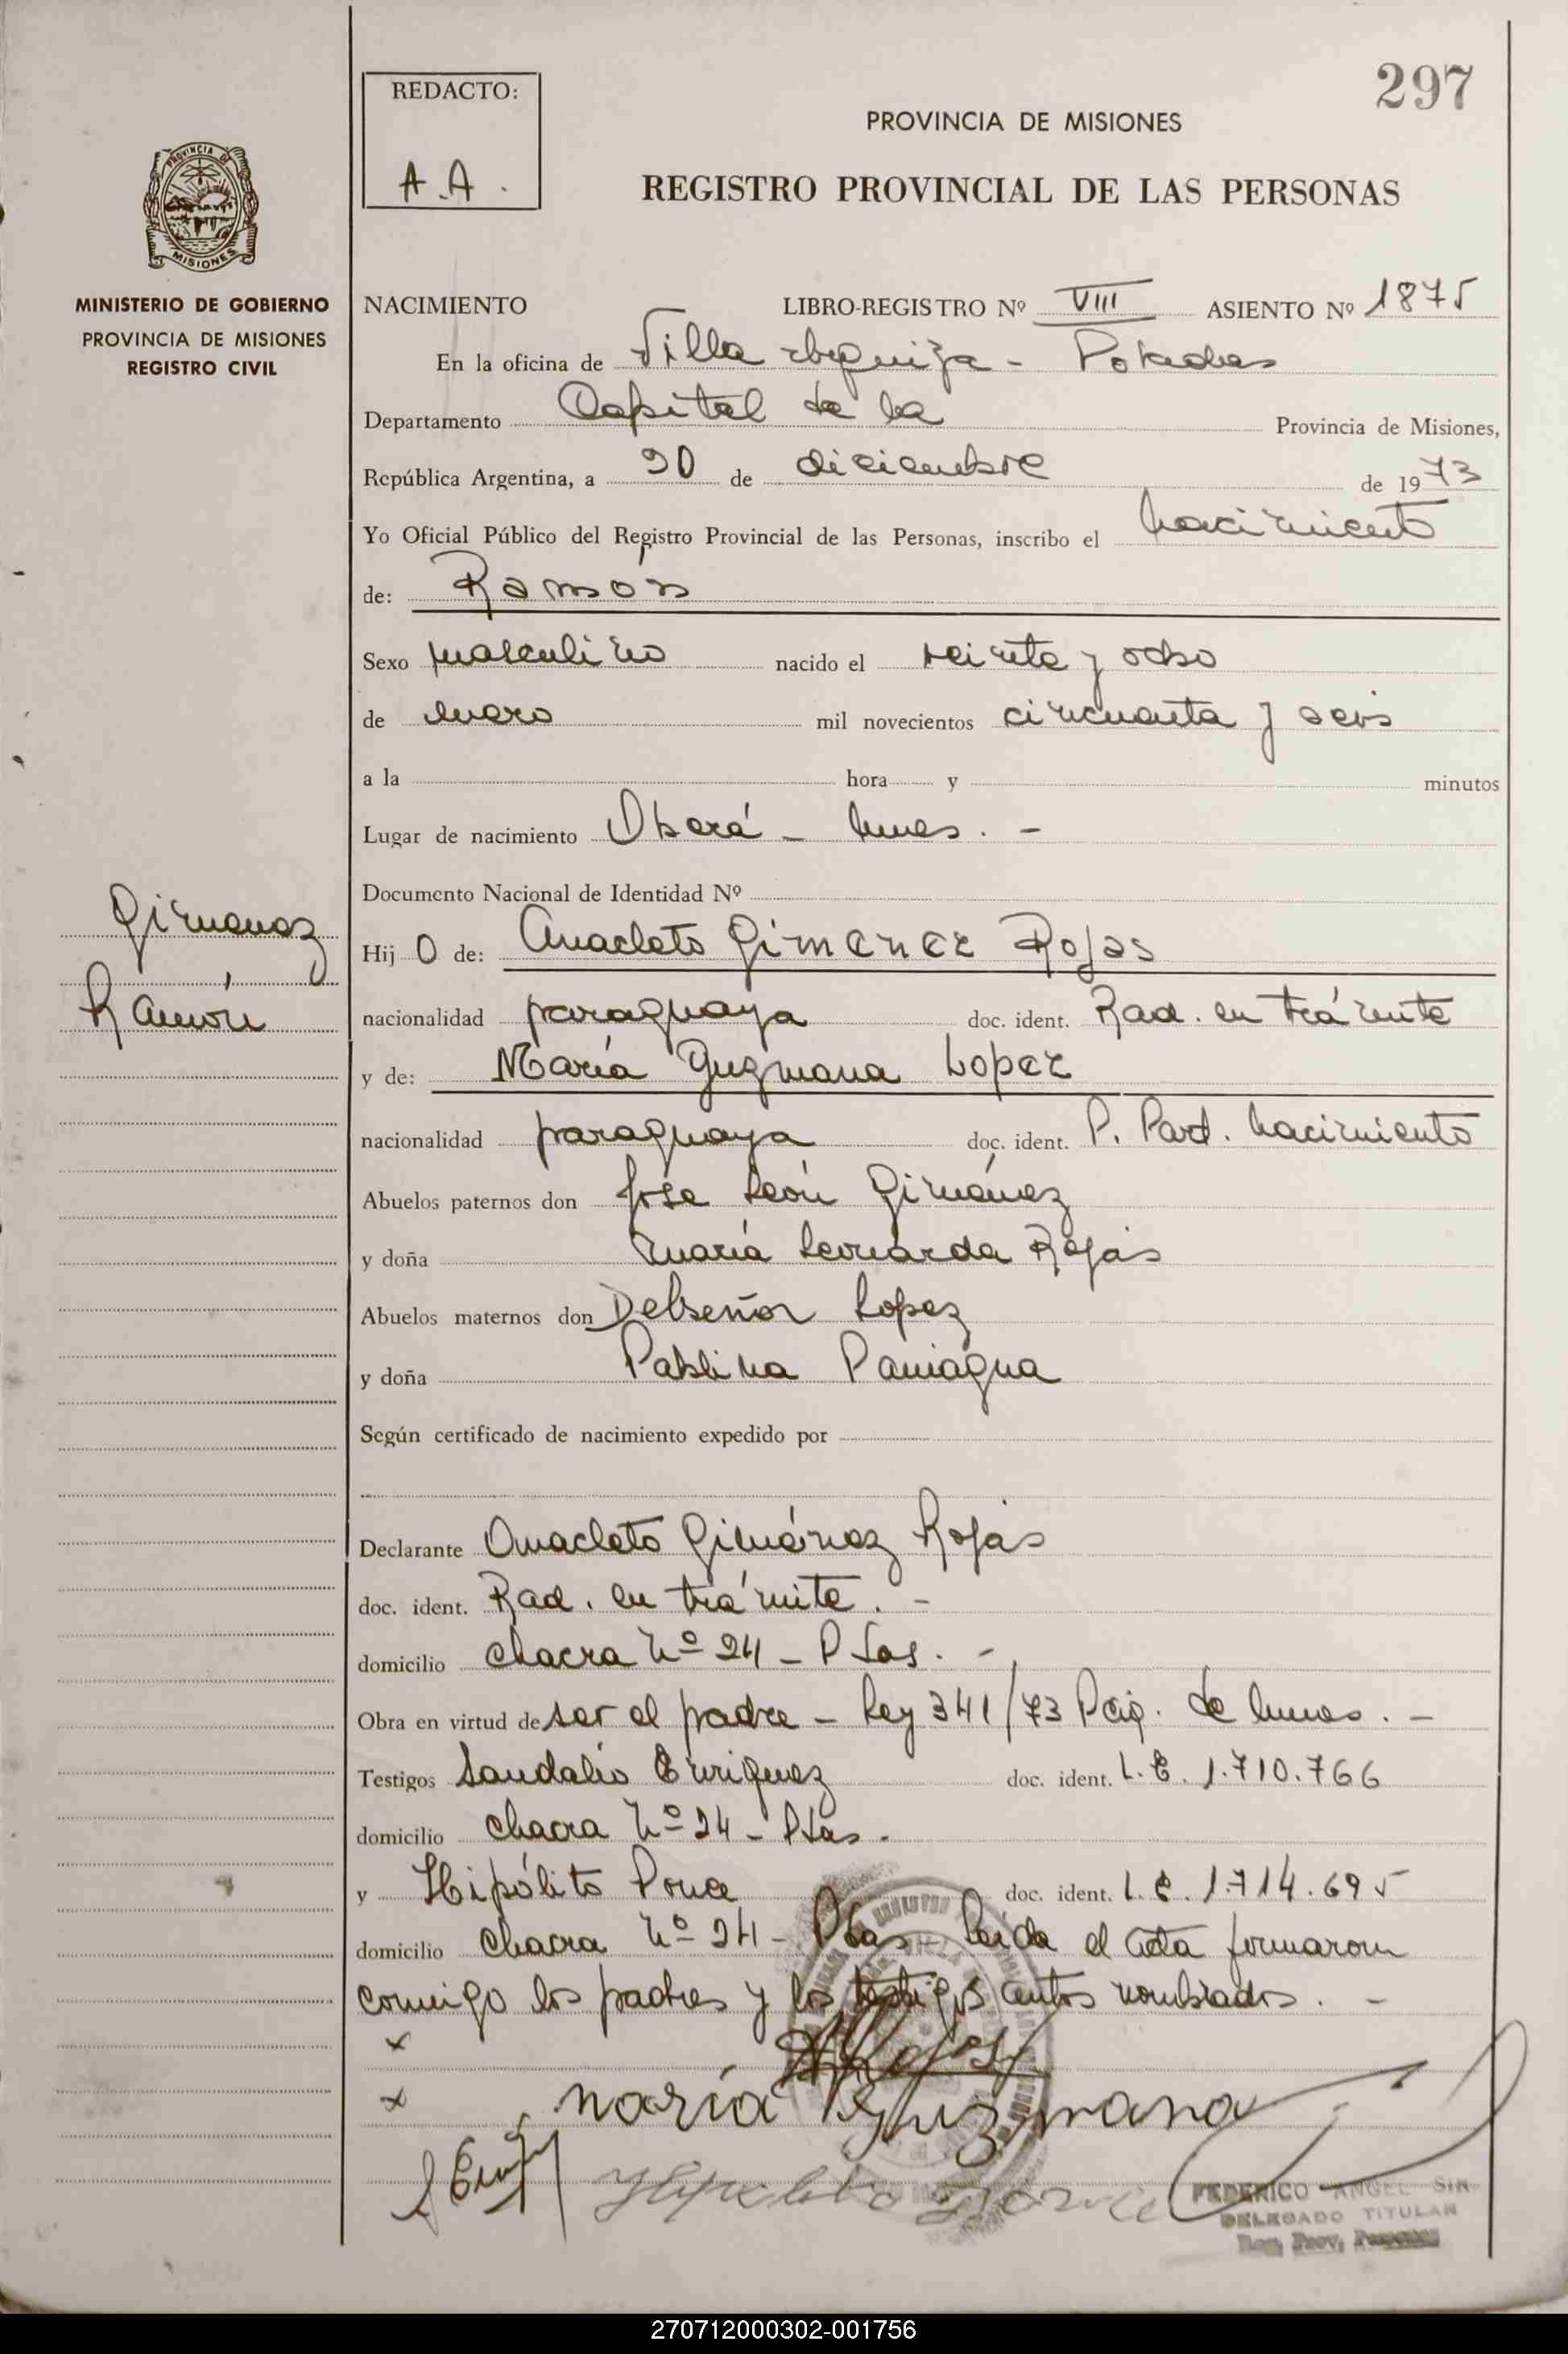 297
REDACTO:
A.A.
PROVINCIA DE MISIONES
REGISTRO PROVINCIAL DE LAS PERSONAS
PROVINCIA DE MISIONES
MINISTERIO DE GOBIERNO
PROVINCIA DE MISIONES
REGISTRO CIVIL
NACIMIENTO LIBRO-REGISTRO Nº VIII ASIENTO Nº 1875
En la oficina de Villa Urquiza - Posadas
Departamento Capital de la Provincia de Misiones,
República Argentina, a de diciembre de 1973
Yo Oficial Público del Registro Provincial de las Personas, inscribo el nacimiento
de: Ramón
Sexo masculino nacido el veinte y ocho
de enero mil novecientos cincuenta y seis
a la hora y minutos
Lugar de nacimiento Oberá - Mnes. -
Documento Nacional de Identidad Nº
Gimenez
Ramón
Hij O de: Anacleto Gimenez Rojas
nacionalidad paraguaya doc. ident. Rad. en trámite
y de: María Guzmana Lopez
nacionalidad paraguaya doc. ident. P. Part. nacimiento
Abuelos paternos don José León Giménez
y doña María Leonarda Rojas
Abuelos maternos don Delseñor Lopez
y doña Pablina Paniagua
Según certificado de nacimiento expedido por
Declarante Anacleto Giménez Rojas
doc. ident. Rad. en trámite. -
domicilio chacra Nº 24 - Psas. -
Obra en virtud de ser el padre - Ley 341/73 Pcia. de Mnes. -
Testigos Sandalio Enriquez doc. ident. L.E. 1.710.766
domicilio chacra Nº 24 - Psas.
y Hipólito Ponce doc. ident. L.E. 1.714.695
domicilio chacra Nº 24 - Psas - Leída el acta firmaron
conmigo los padres y los testigos antes nombrados. -
x ARojas
x María Guzmana
Hipolito Ponce
FEDERICO ANGEL SIN
DELEGADO TITULAR
Reg. Prov. Personas
270712000302-001756